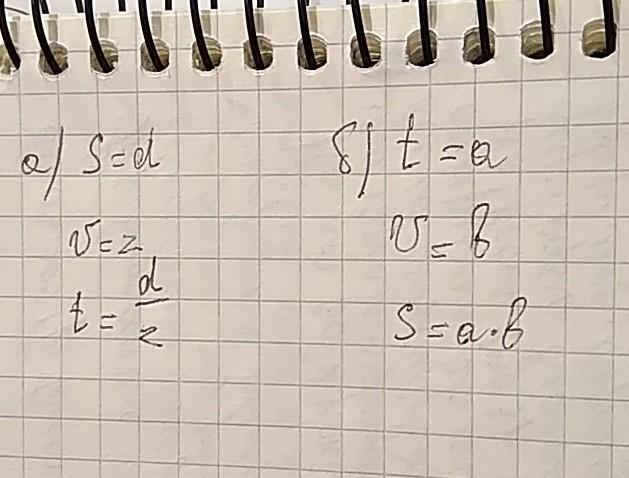 а) S = d
v = z
t = d/z
б) t = a
v = b
S = a·b